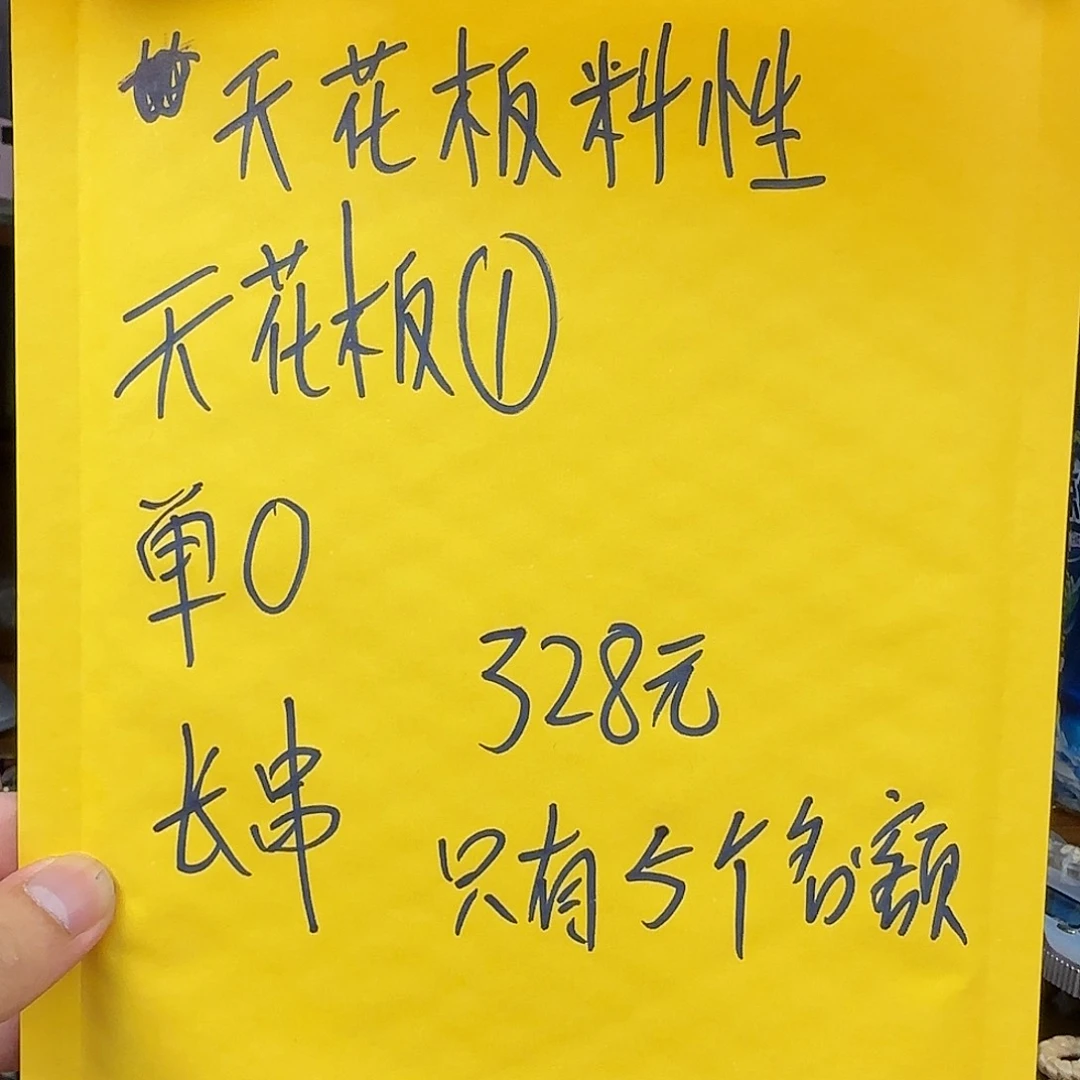 天花板料性
天花板①
单O
328元
长串
只有5个名额